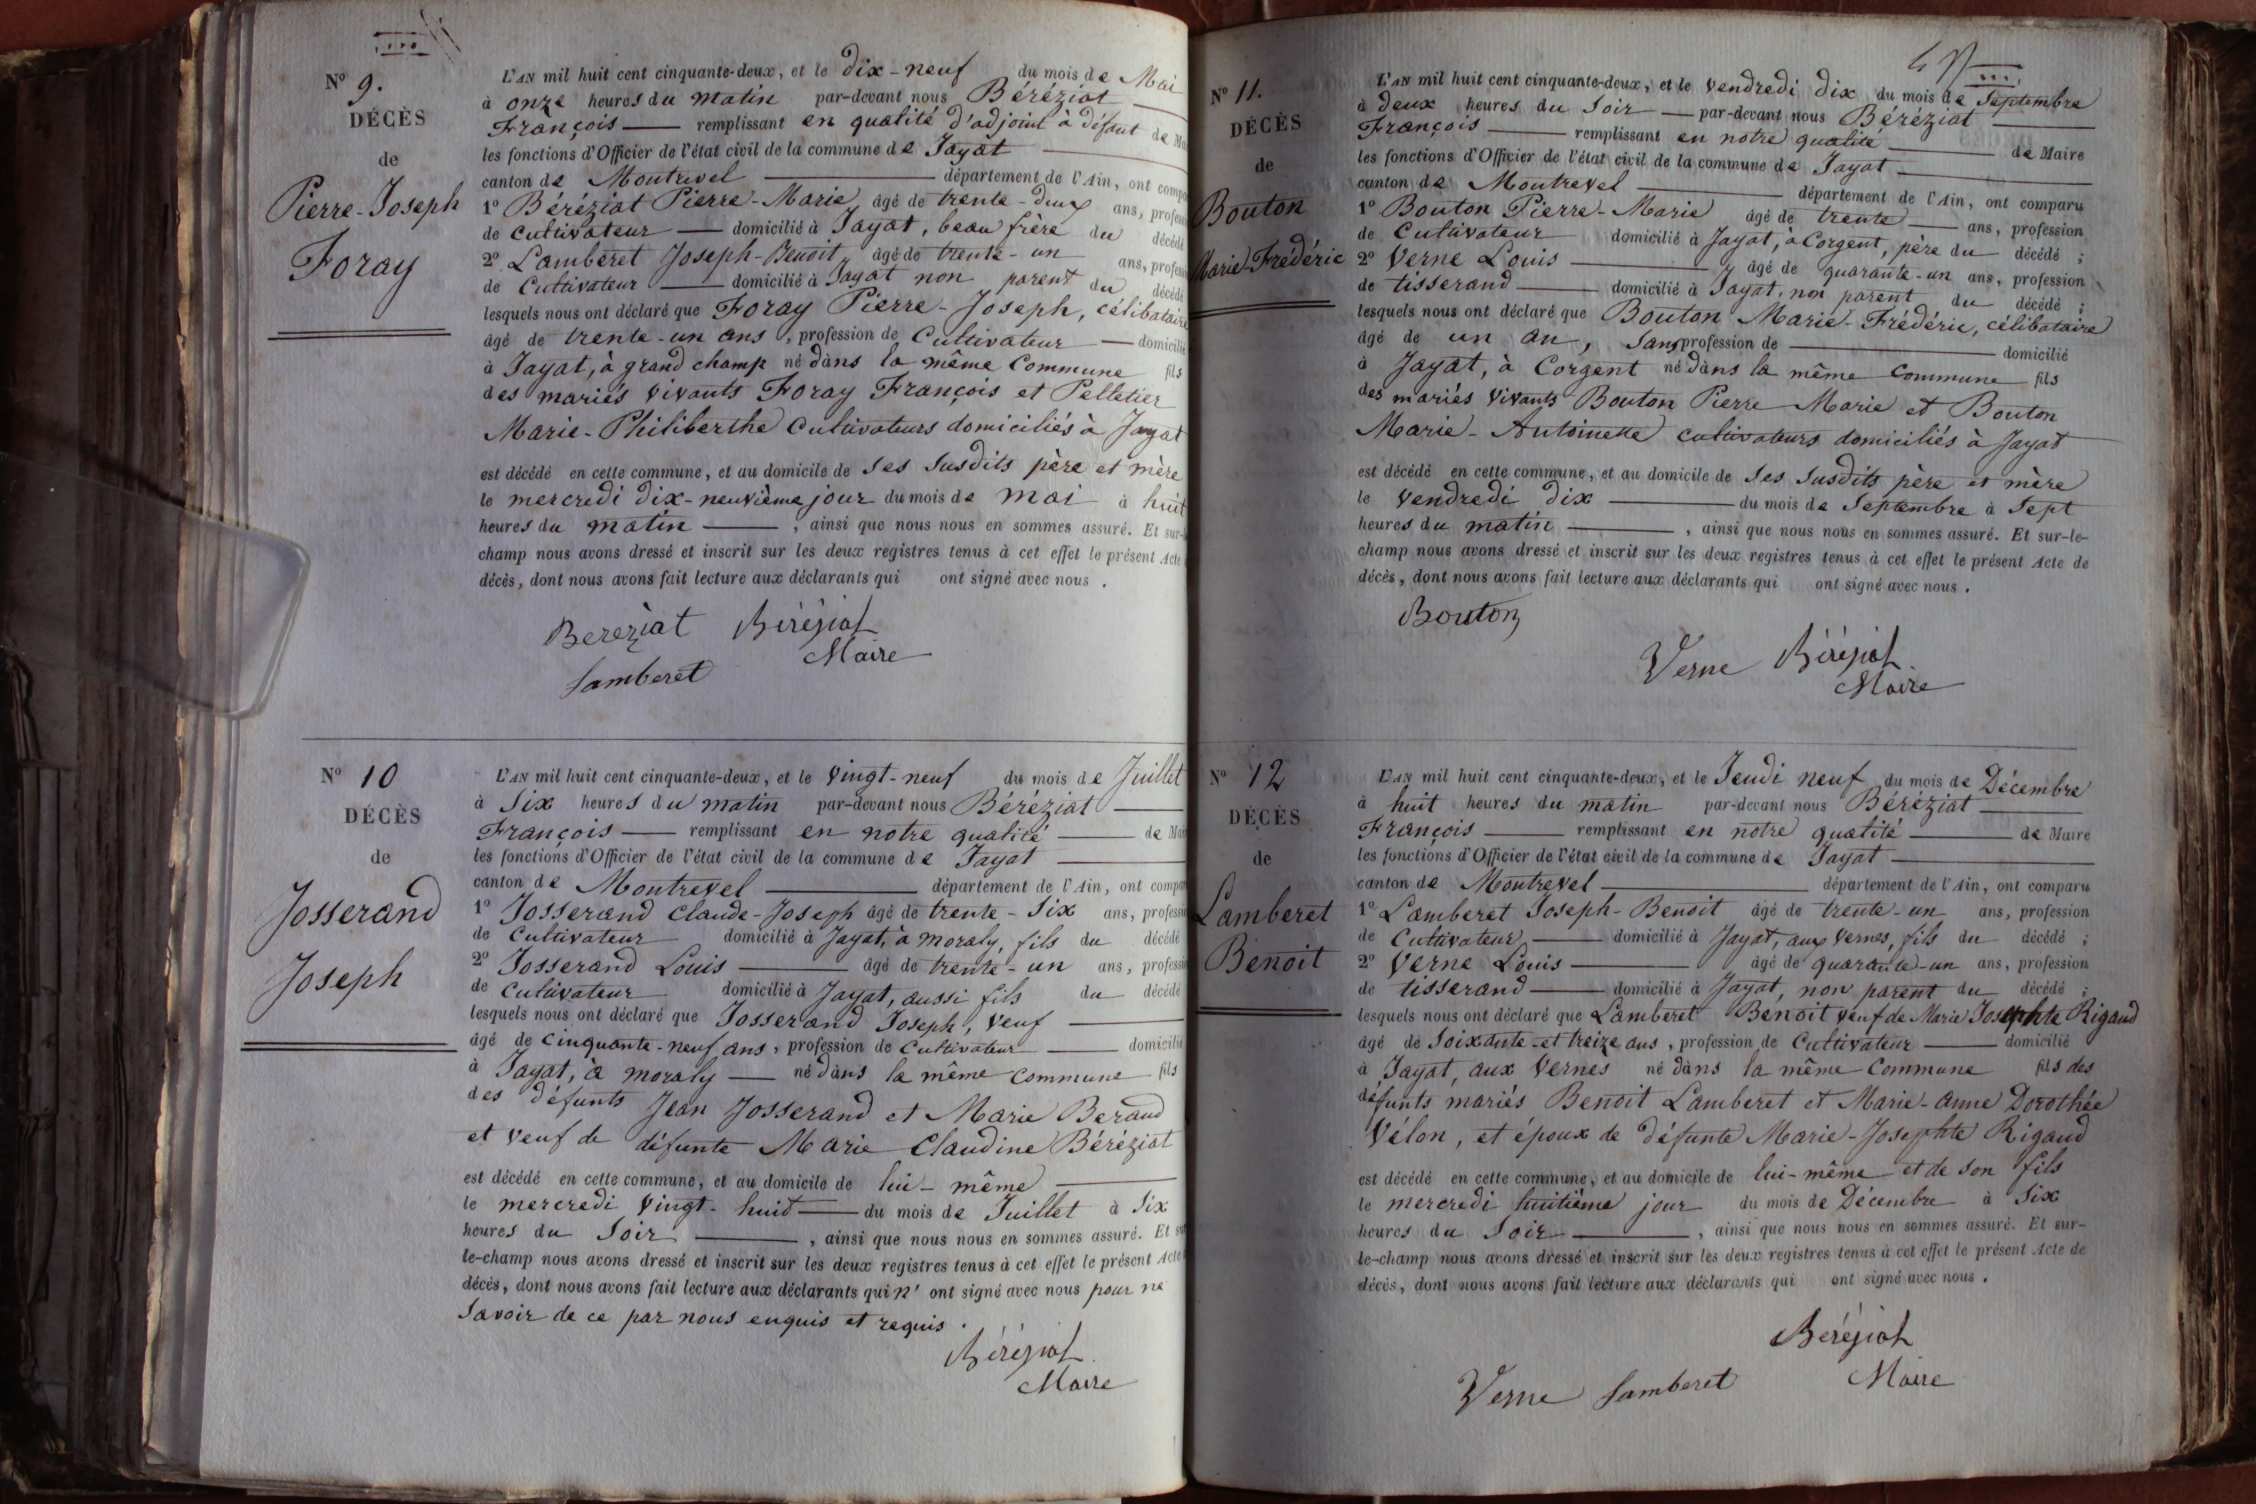 N° 9.
DÉCÈS
de
Pierre-Joseph
Foray
L'AN mil huit cent cinquante-deux, et le dix-neuf du mois de Mai
à onze heures du matin par-devant nous Béréziat
François remplissant en qualité d'adjoint à défaut de
les fonctions d'Officier de l'état civil de la commune de Jayat
canton de Montrevel département de l'Ain, ont
1° Béréziat Pierre-Marie âgé de trente-deux ans,
de cultivateur domicilié à Jayat, beau frère du décédé
2° Lamberet Joseph-Benoit âgé de trente-un ans,
de Cultivateur domicilié à Jayat non parent du décédé
lesquels nous ont déclaré que Foray Pierre-Joseph, célibataire
âgé de trente-un ans, profession de Cultivateur domicilié
à Jayat, à grand champ né dans la même Commune fils
des mariés vivants Foray François et Pelletier
Marie-Philiberthe Cultivateurs domiciliés à Jayat
est décédé en cette commune, et au domicile de ses susdits père et mère
le mercredi dix-neuvième jour du mois de mai à huit
heures du matin, ainsi que nous nous en sommes assuré. Et sur-
champ nous avons dressé et inscrit sur les deux registres tenus à cet effet le présent Acte
décès, dont nous avons fait lecture aux déclarants qui ont signé avec nous.
Bereziat Béréziat
Maire
Lamberet
N° 10
DÉCÈS
de
Josserand
Joseph
L'AN mil huit cent cinquante-deux, et le vingt-neuf du mois de Juillet
à Six heures du matin par-devant nous Béréziat
François remplissant en notre qualité de
les fonctions d'Officier de l'état civil de la commune de Jayat
canton de Montrevel département de l'Ain, ont
1° Josserand Claude-Joseph âgé de trente-six ans,
de Cultivateur domicilié à Jayat, à moraly, fils du décédé
2° Josserand Louis âgé de trente-un ans,
de Cultivateur domicilié à Jayat, aussi fils du décédé
lesquels nous ont déclaré que Josserand Joseph, veuf
âgé de cinquante-neuf ans, profession de Cultivateur domicilié
à Jayat, à moraly né dans la même commune fils
des défunts Jean Josserand et Marie Beraud
et veuf de défunte Marie Claudine Béréziat
est décédé en cette commune, et au domicile de lui-même
le mercredi vingt-huit du mois de Juillet à Six
heures du Soir, ainsi que nous nous en sommes assuré. Et
le-champ nous avons dressé et inscrit sur les deux registres tenus à cet effet le présent Acte
décès, dont nous avons fait lecture aux déclarants qui n'ont signé avec nous pour ne
Savoir de ce par nous enquis et requis.
Béréziat
Maire
N° 11.
DÉCÈS
de
Bouton
Marie-Fredéric
L'AN mil huit cent cinquante-deux, et le vendredi dix du mois de Septembre
à deux heures du soir par-devant nous Béréziat
François remplissant en notre qualité de Maire
les fonctions d'Officier de l'état civil de la commune de Jayat
canton de Montrevel département de l'Ain, ont comparu
1° Bouton Pierre-Marie âgé de trente ans, profession
de Cultivateur domicilié à Jayat, à Corgent, père du décédé ;
2° Verne Louis âgé de quarante-un ans, profession
de tisserand domicilié à Jayat, non parent du décédé ;
lesquels nous ont déclaré que Bouton Marie-Frédéric, célibataire
âgé de un an, sans profession de domicilié
à Jayat, à Corgent né dans la même commune fils
des mariés vivants Bouton Pierre Marie et Bouton
Marie-Antoinette cultivateurs domiciliés à Jayat
est décédé en cette commune, et au domicile de ses susdits père et mère
le vendredi dix du mois de Septembre à sept
heures du matin, ainsi que nous nous en sommes assuré. Et sur-le-
champ nous avons dressé et inscrit sur les deux registres tenus à cet effet le présent Acte de
décès, dont nous avons fait lecture aux déclarants qui ont signé avec nous.
Bouton
Verne Béréziat
Maire
N° 12
DÉCÈS
de
Lamberet
Benoit
L'AN mil huit cent cinquante-deux, et le Jeudi neuf du mois de Décembre
à huit heures du matin par-devant nous Béréziat
François remplissant en notre qualité de Maire
les fonctions d'Officier de l'état civil de la commune de Jayat
canton de Montrevel département de l'Ain, ont comparu
1° Lamberet Joseph-Benoit âgé de trente-un ans, profession
de Cultivateur domicilié à Jayat, aux Vernes, fils du décédé ;
2° Verne Louis âgé de quarante-un ans, profession
de tisserand domicilié à Jayat, non parent du décédé ;
lesquels nous ont déclaré que Lamberet Benoit veuf de Marie Josephte Rigaud
âgé de soixante-et treize ans, profession de Cultivateur domicilié
à Jayat, aux Vernes né dans la même Commune fils des
défunts mariés Benoit Lamberet et Marie-anne Dorothée
Vélon, et époux de défunte Marie-Josephte Rigaud
est décédé en cette commune, et au domicile de lui-même et de son fils
le mercredi huitième jour du mois de Décembre à Six
heures du Soir, ainsi que nous nous en sommes assuré. Et sur-
le-champ nous avons dressé et inscrit sur les deux registres tenus à cet effet le présent Acte de
décès, dont nous avons fait lecture aux déclarants qui ont signé avec nous.
Béréziat
Verne Lamberet Maire